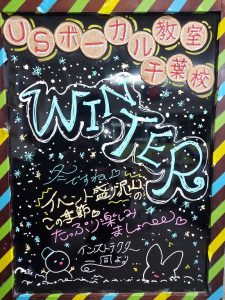 USボーカル教室
千葉校
WINTER
冬ですね♡
イベント盛り沢山の!
この季節♡
たっぷり楽しみ
ましょ〜♡
インストラクター
一同より…